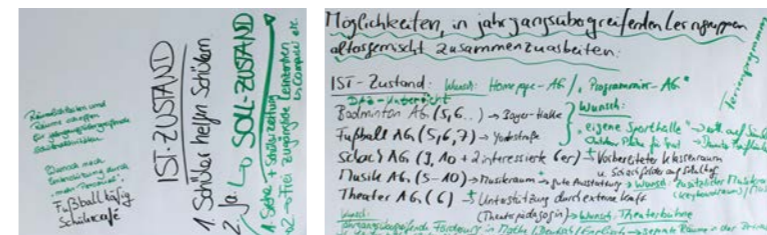 Räumlichkeiten und
Räume schaffen
für jahrgangsübergreifende
Wunsch nach
Unterstützung durch
"mehr Personal"
Fußballkäfig
Schülercafé
IST-ZUSTAND
1. Schüler helfen Schülern
2. Ja! → SOLL-ZUSTAND
1. Siehe + Schülerzeitung
2 → Frei zugängliche Lernorten
Computer etc.
Möglichkeiten, in jahrgangsübergreifenden Lerngruppen
altersgemischt zusammenzuarbeiten:
IST-Zustand: Wunsch: Homepage-AG /, Programmier-AG"
DAZ-Unterricht
Badminton AG (5,6..) → Halle
Wunsch:
Fußball AG (5,6,7) →
"eigene Sporthalle"
Schach AG (9, 10 + 2 interessierte 6er) + Vorbereiteter Klassenraum
u. Schachfelder auf Schulhof
Musik AG (5-10) → Musikraum + gute Ausstattung → Wunsch: zusätzlicher Musikraum
Theater AG (6) + Unterstützung durch externe Kraft
(Theaterpädagogin) → Wunsch: Theaterbühne
Wunsch:
Jahrgangsübergreifende Förderung in Mathe / Deutsch / Englisch → separate Räume in der